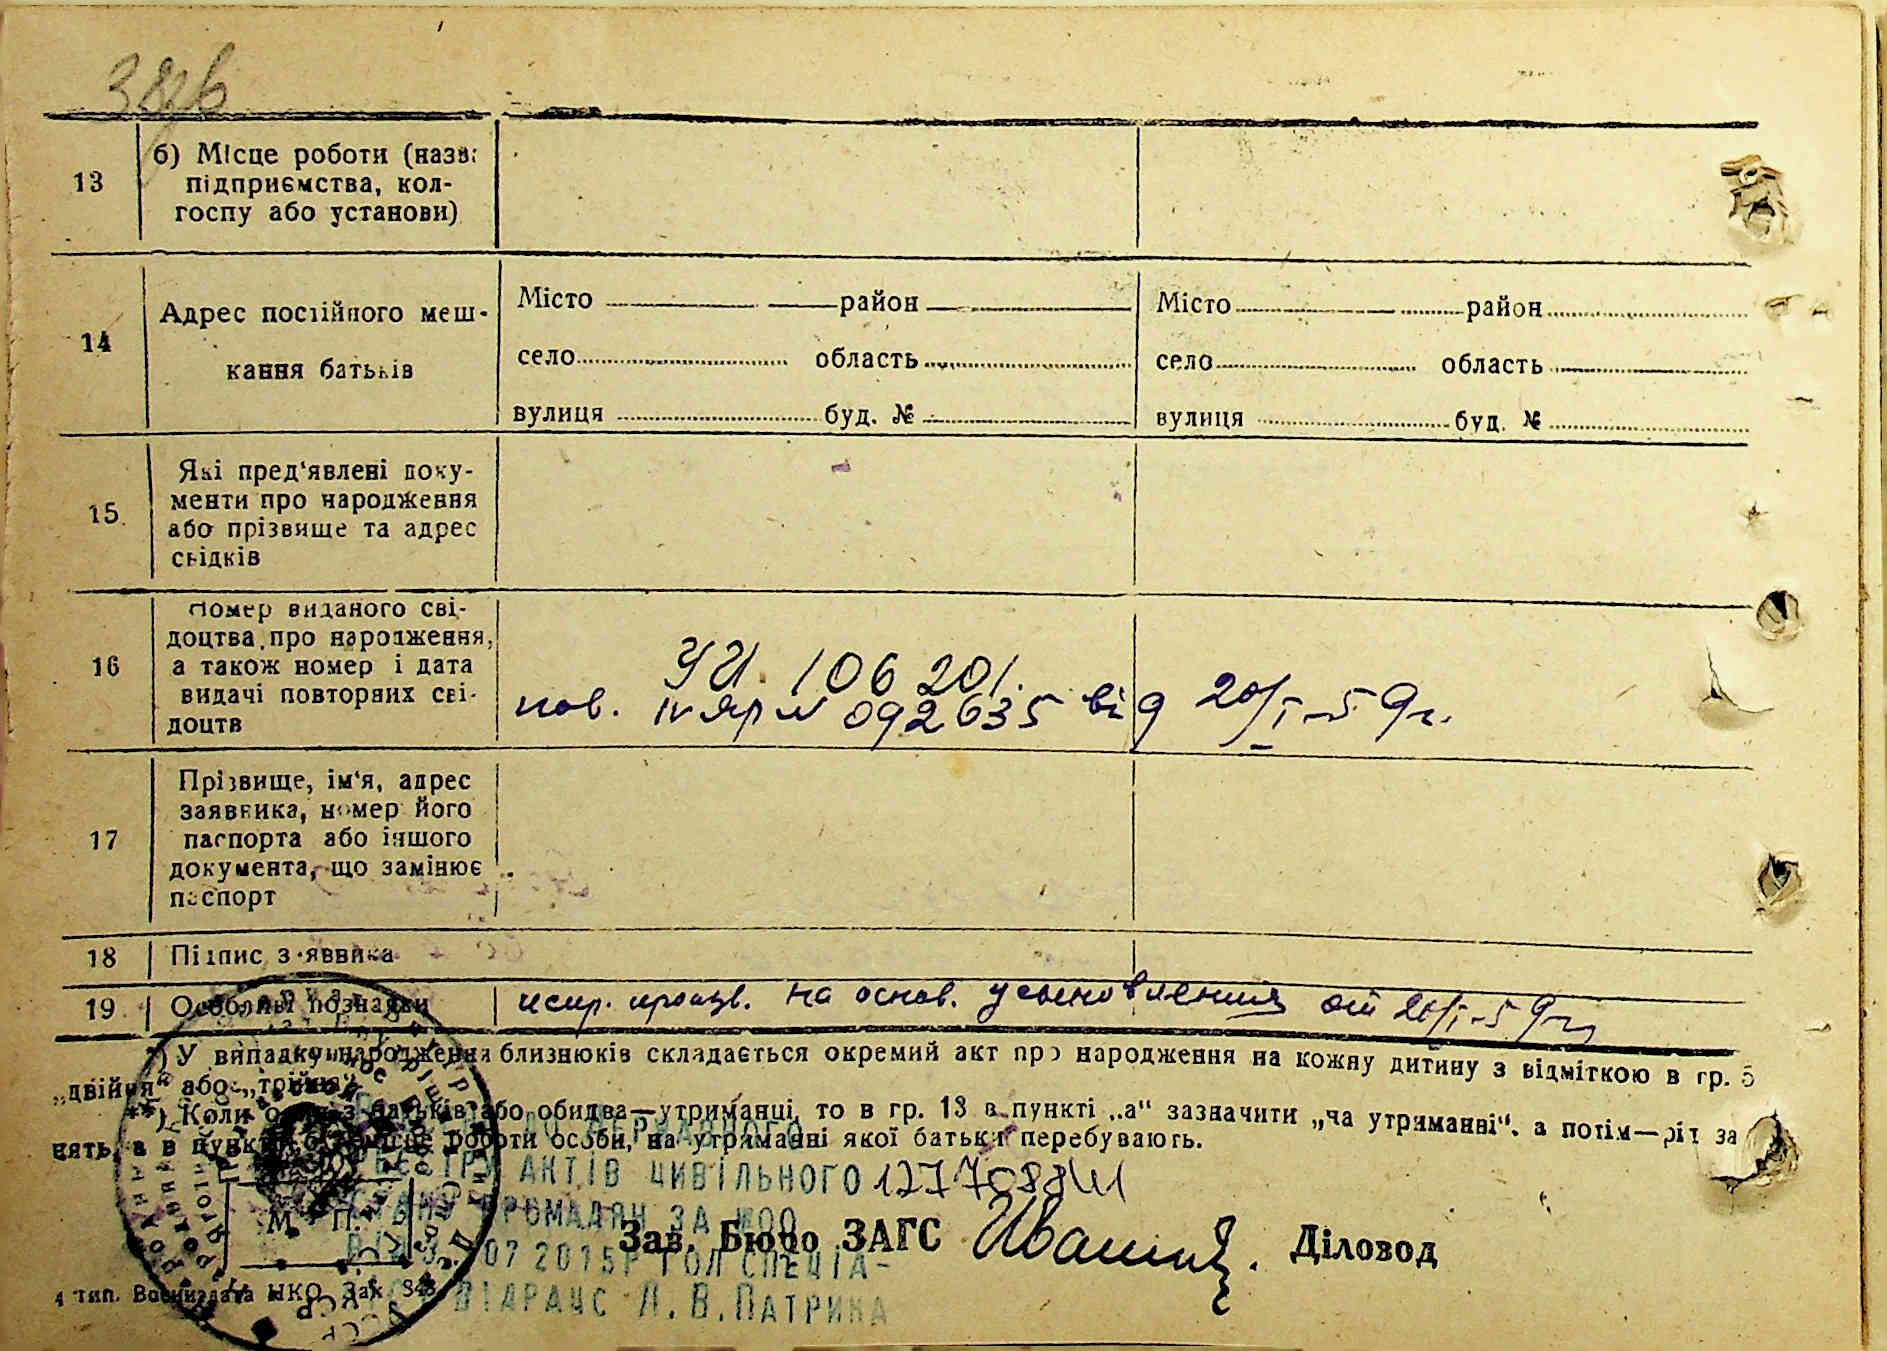 13
б) Місце роботи (назва
підприємства, кол-
госпу або установи)
14
Адрес постійного меш-
кання батьків
Місто район
село область
вулиця буд. №
Місто район
село область
вулиця буд. №
15
Які пред'явлені доку-
менти про народження
або прізвище та адрес
свідків
16
Номер виданого сві-
доцтва про народження,
а також номер і дата
видачі повторних сві-
доцтв
УИ. 106 201.
пов. IV ЯР № 092635 від 20/I-59г.
17
Прізвище, ім'я, адрес
заявника, номер його
паспорта або іншого
документа, що замінює
паспорт
18 Підпис заявника
19 Особливі познаки
испр. произв. на основ. усыновления от 20/I-59г.
*) У випадку народження близнюків складається окремий акт про народження на кожну дитину з відміткою в гр. 5
„двійня" або „трійня".
**) Коли один з батьків або обидва—утриманці, то в гр. 13 в пункті „а" зазначити „на утриманні", а потім—рід за
нять, а в пункті роботи особи, на утриманні якої батьки перебувають.
ДО ДЕРЖАВНОГО
РЕЄСТРУ АКТІВ ЦИВІЛЬНОГО
СТАНУ ГРОМАДЯН ЗА №00
07 2015Р ГОЛ СПЕЦІА-
ВІДРАЦС Л.В.ПАТРИКА
М. П.
Зав. Бюро ЗАГС Діловод
4 тип. Воениздата НКО. Зак. 343